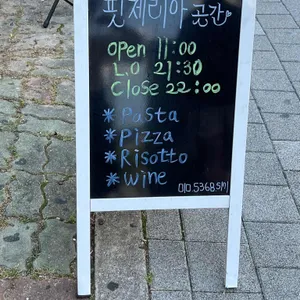 핏제리아 공간
Open 11:00
L.O 21:30
Close 22:00
* Pasta
* Pizza
* Risotto
* Wine